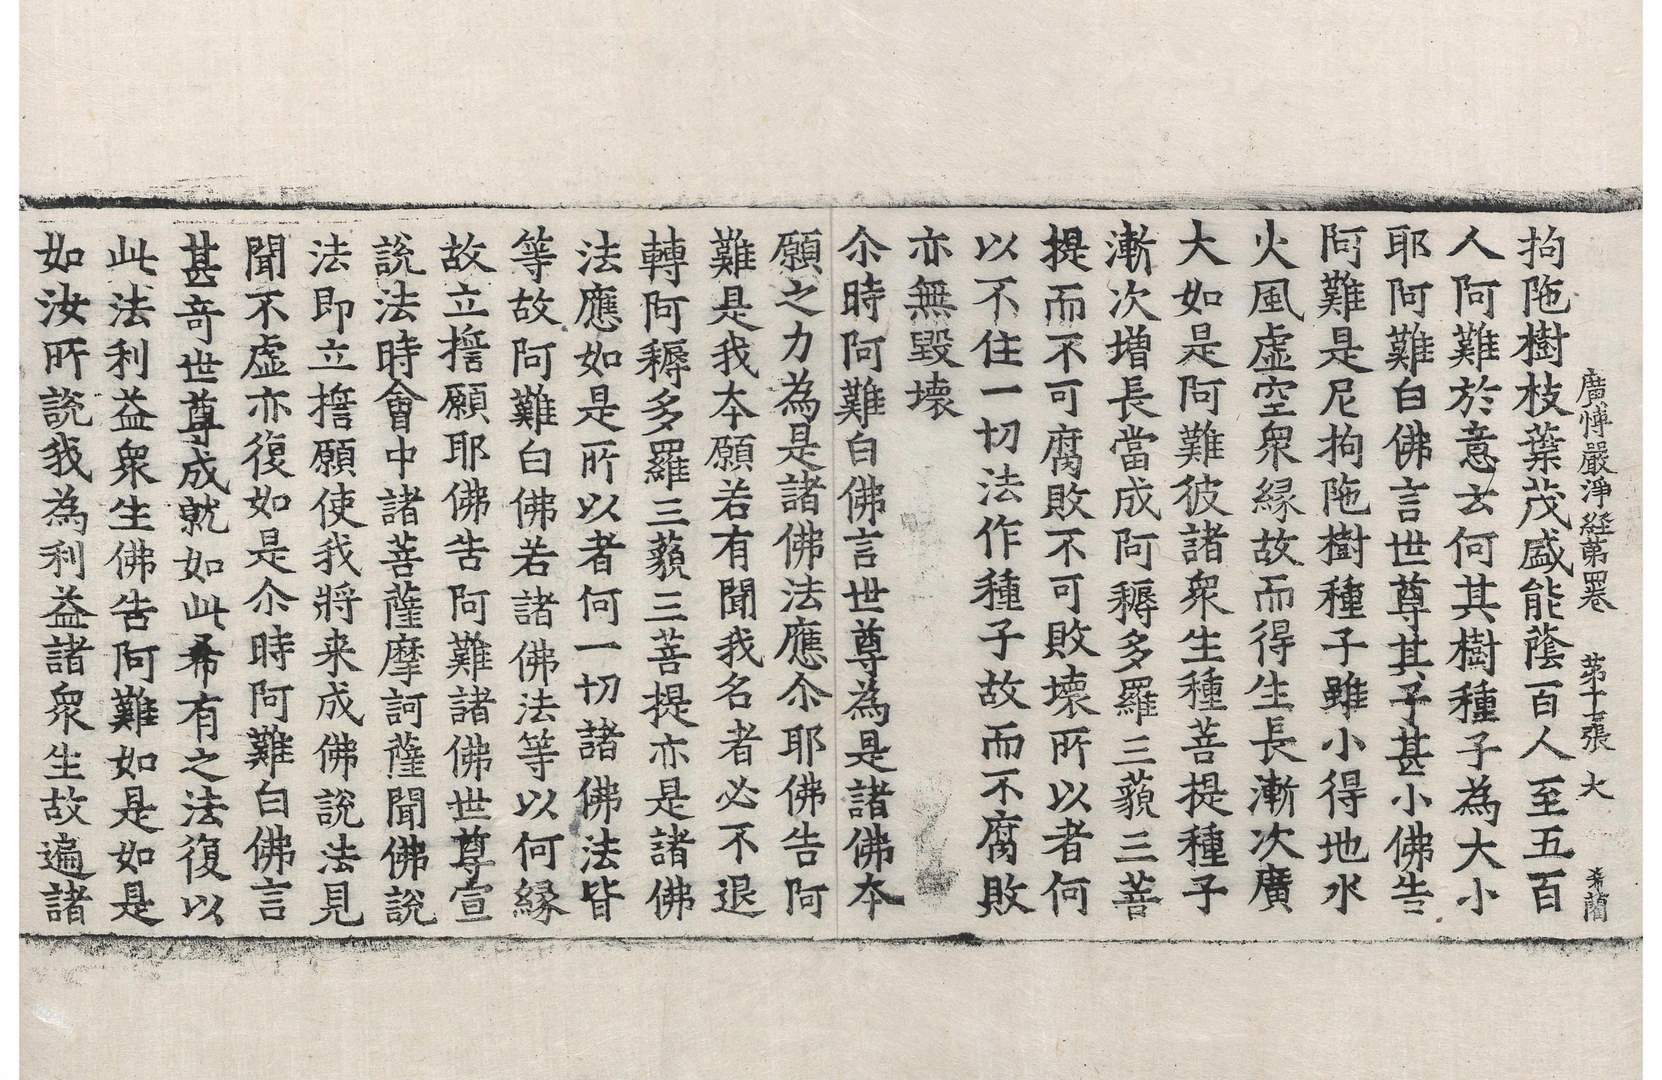 廣博嚴淨經第四卷　第十二張　大
拘陁樹枝葉茂盛能蔭一百人至五百
人阿難於意云何其樹種子為大小
耶阿難白佛言世尊其子甚小佛告
阿難是尼拘陁樹種子雖小得地水
火風虛空衆緣故而得生長漸次廣
大如是阿難彼諸衆生種菩提種子
漸次増長當成阿耨多羅三藐三菩
提而不可腐敗不可敗壞所以者何
以不住一切法作種子故而不腐敗
亦無毀壞
尒時阿難白佛言世尊為是諸佛本
願之力為是諸佛法應尒耶佛告阿
難是我本願若有聞我名者必不退
轉阿耨多羅三藐三菩提亦是諸佛
法應如是所以者何一切諸佛法皆
等故阿難白佛若諸佛法等以何緣
故立誓願耶佛告阿難諸佛世尊宣
說法時會中諸菩薩摩訶薩聞佛說
法即立誓願使我將来成佛說法見
聞不虛亦復如是尒時阿難白佛言
甚奇世尊成就如此希有之法復以
此法利益衆生佛告阿難如是如是
如汝所說我為利益諸衆生故遍諸